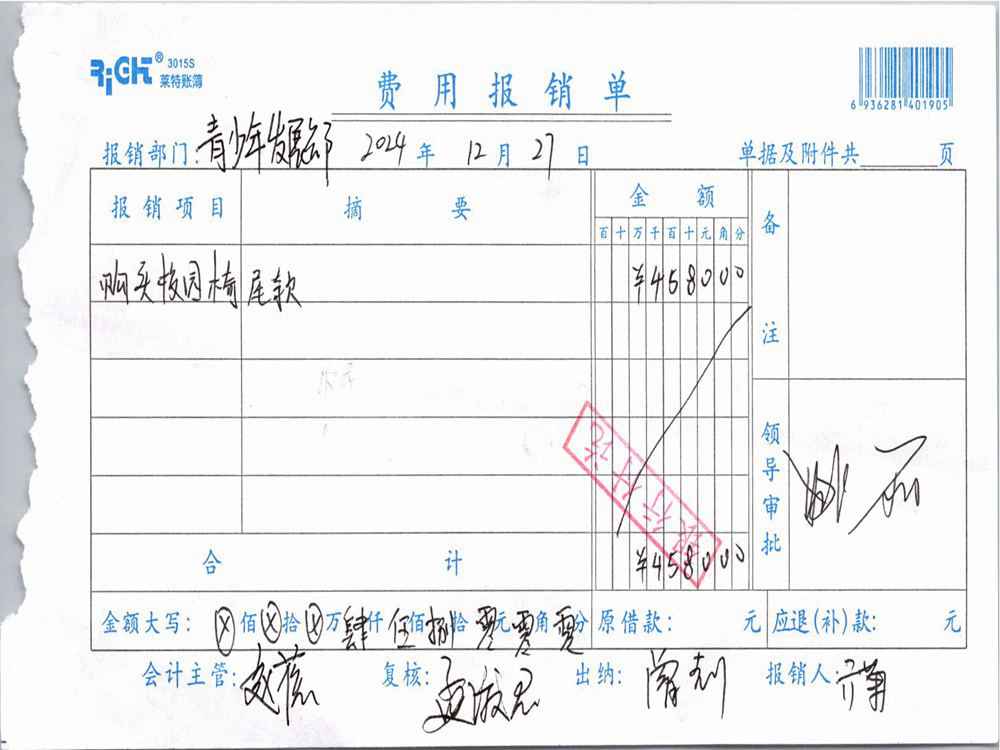 RiCHT® 3015S
莱特账簿
费用报销单
6 936281 401905
报销部门:青少年发展部 2024年12月27日 单据及附件共 页
报销项目 摘要 金额 备注
百十万千百十元角分
购买校园椅尾款 ¥458000
银行付讫
领导审批
合计 ¥458000
金额大写:ⓧ佰ⓧ拾ⓧ万肆仟伍佰捌拾零元零角零分 原借款: 元 应退(补)款: 元
会计主管: 复核: 出纳: 报销人: